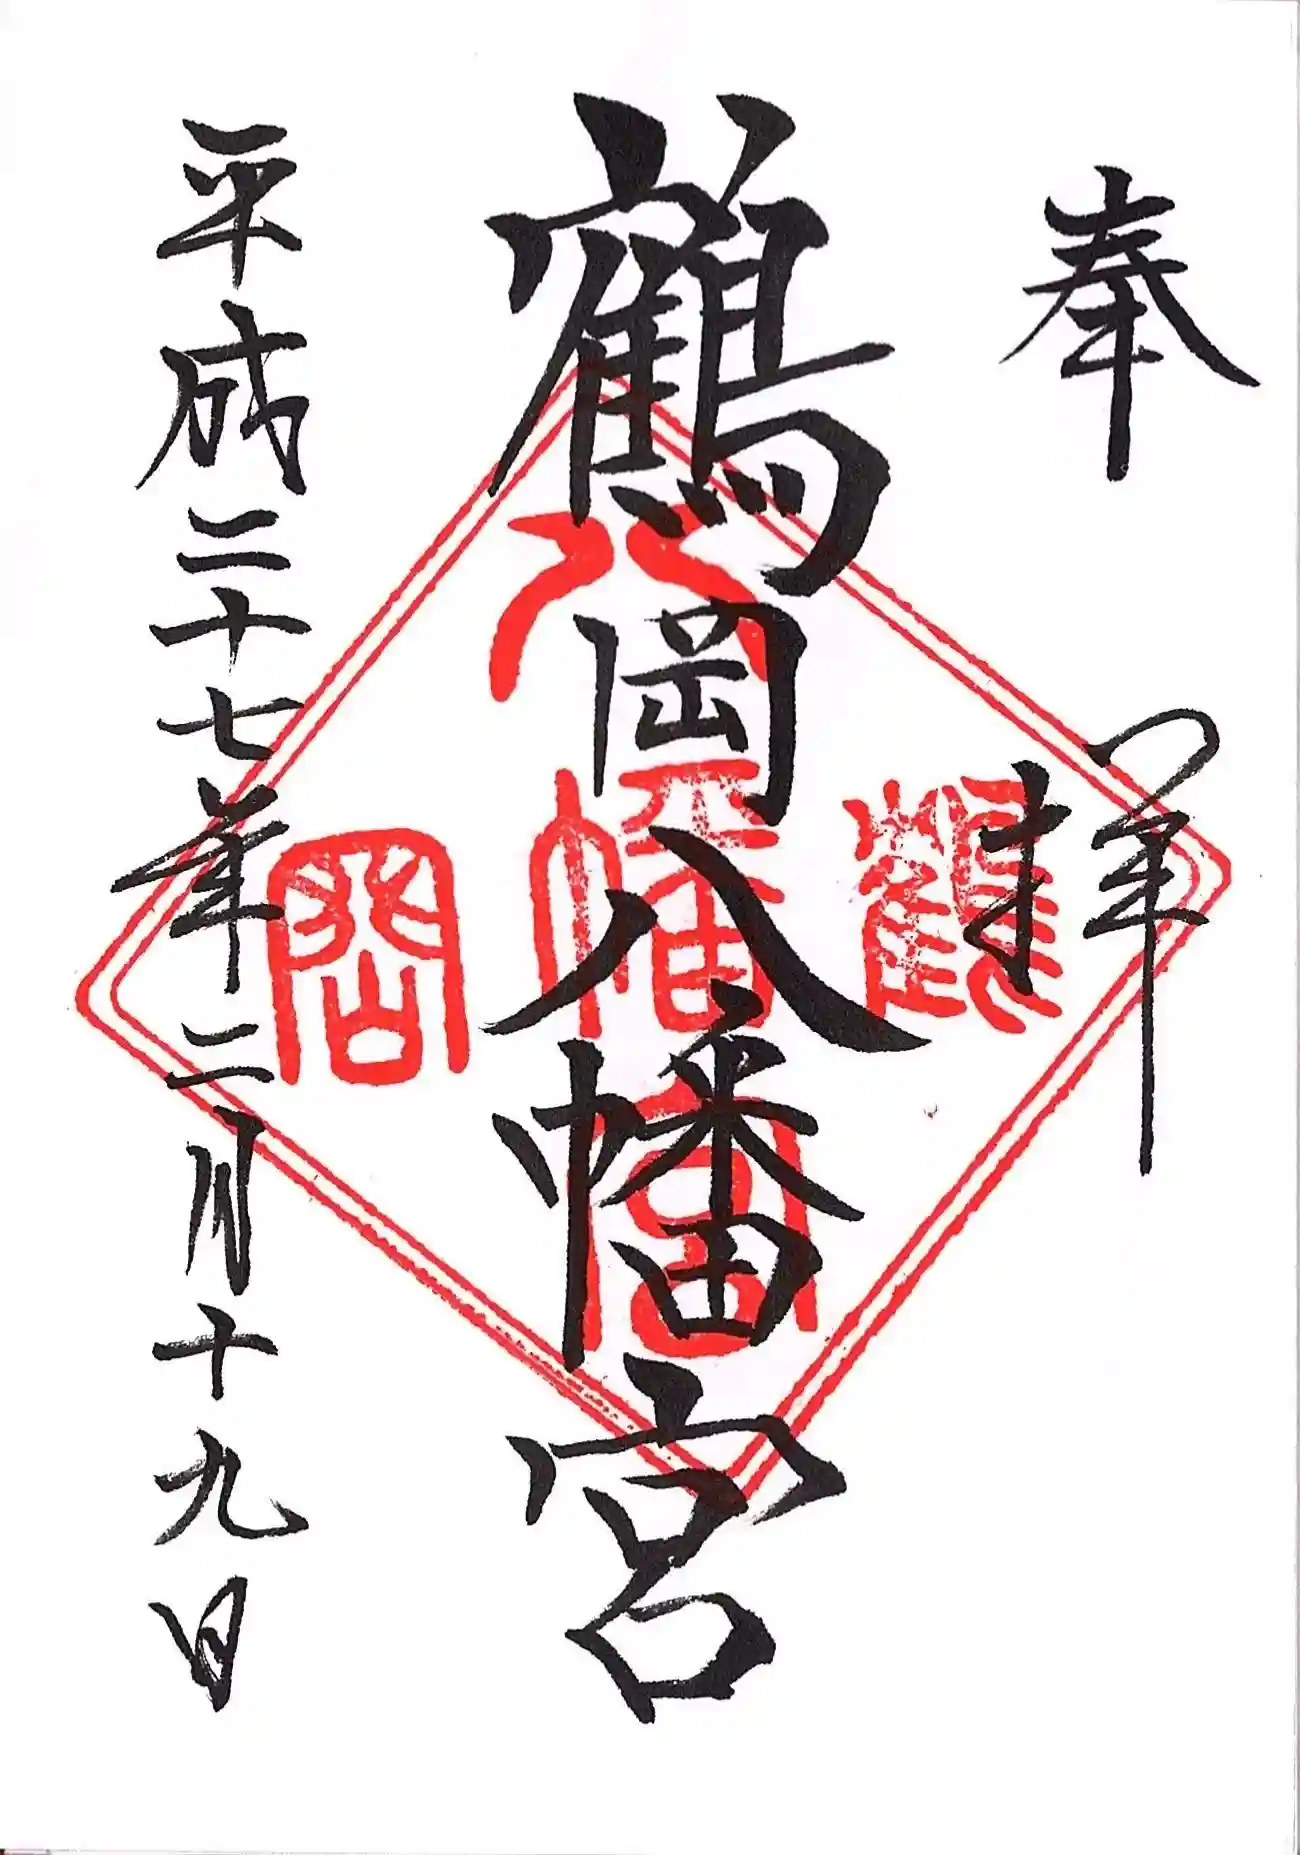 奉拝
鶴岡八幡宮
平成二十七年二月十九日
鶴
八幡宮
岡